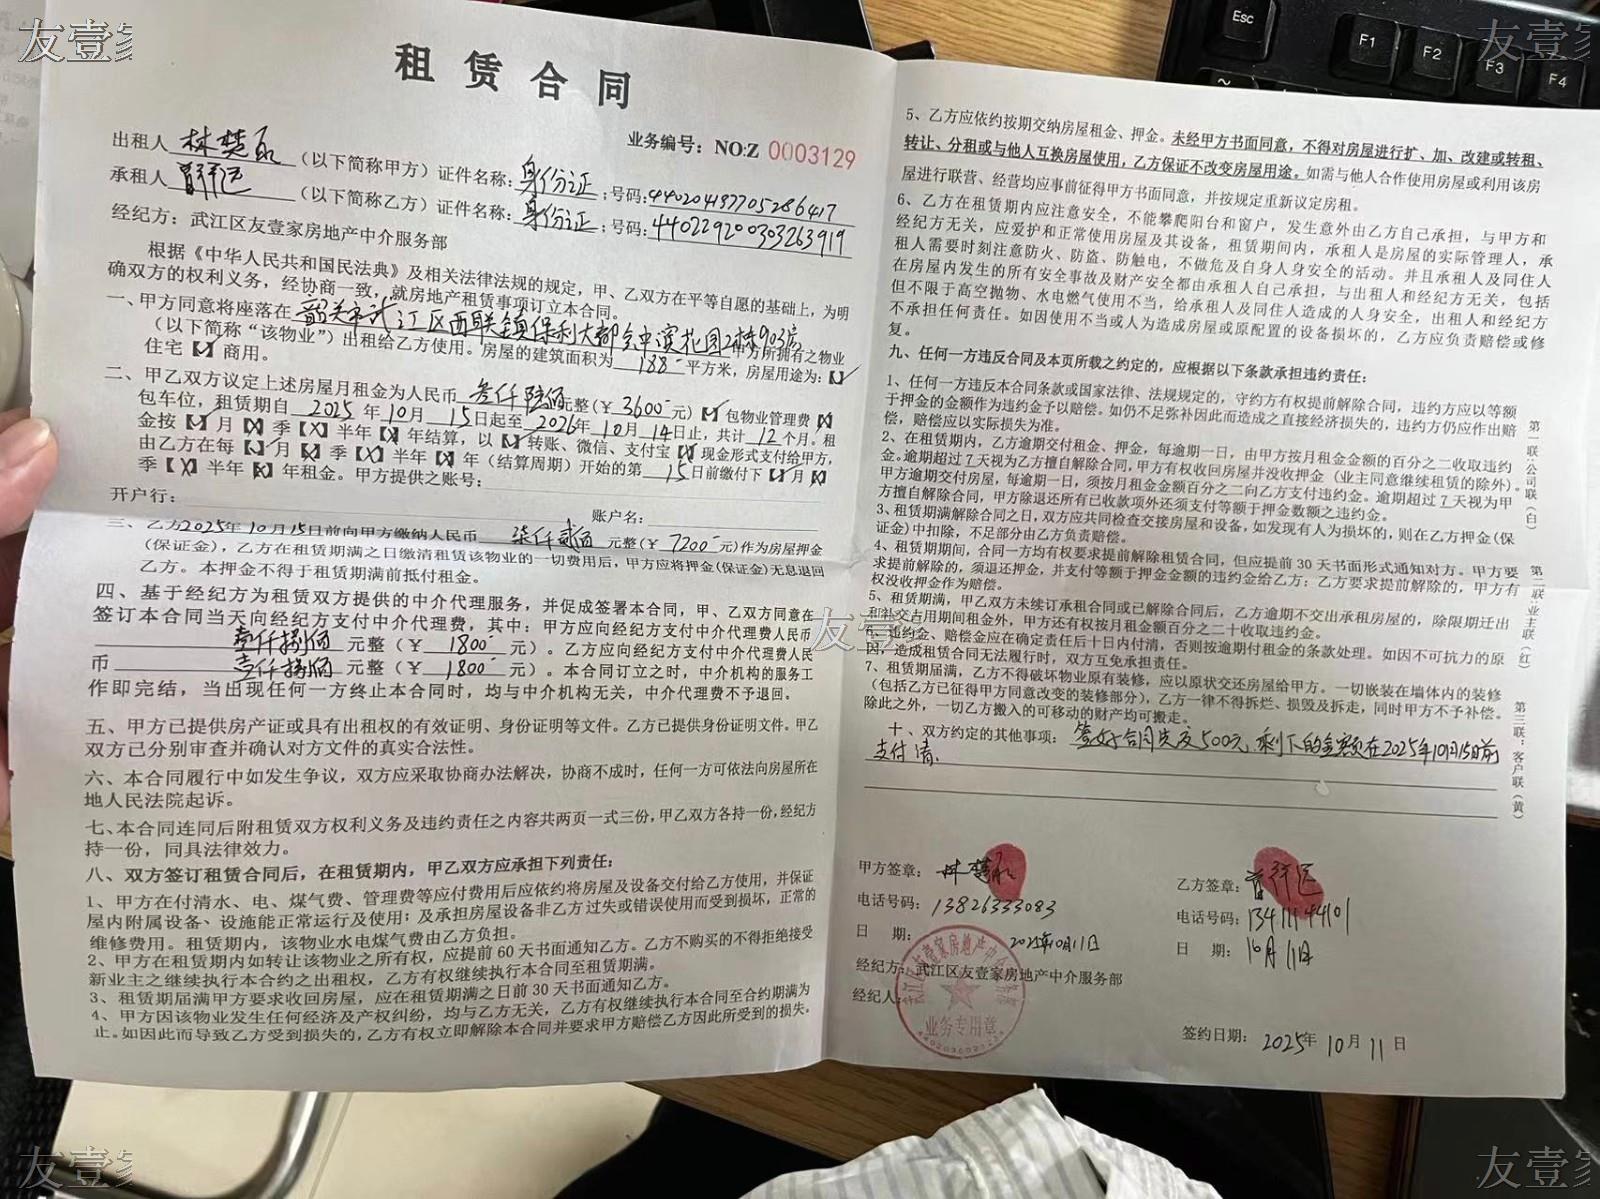 友壹家
友壹家
Esc
F1
F2
F3
F4
租赁合同
业务编号：NO:Z 0003129
出租人 林楚（以下简称甲方）证件名称：身份证；号码：440204197705286417
承租人（以下简称乙方）证件名称：身份证；号码：440229200303263919
经纪方：武江区友壹家房地产中介服务部
根据《中华人民共和国民法典》及相关法律法规的规定，甲、乙双方在平等自愿的基础上，为明
确双方的权利义务，经协商一致，就房地产租赁事项订立本合同。
一、甲方同意将座落在 韶关市武江区西联镇保利大都会中滨花园2栋903房
（以下简称“该物业”）出租给乙方使用。房屋的建筑面积为 188 平方米，房屋用途为：【✓】
甲方所拥有之物业
住宅【】商用。
二、甲乙双方议定上述房屋月租金为人民币 叁仟陆佰元整（￥3600元）【✓】包物业管理费【X】
包车位，租赁期自 2025 年 10 月 15 日起至 2026 年 10 月 14 日止，共计 12 个月。租
金按【✓】月【X】季【X】半年【X】年结算，以【✓】转账、微信、支付宝【】现金形式支付给甲方，
由乙方在每【✓】月【X】季【X】半年【X】年（结算周期）开始的第 15 日前缴付下【✓】月【X】
季【X】半年【X】年租金。甲方提供之账号：
开户行： 账户名：
三、乙方 2025年10月15日前向甲方缴纳人民币 柒仟贰佰 元整（￥7200元）作为房屋押金
（保证金），乙方在租赁期满之日缴清租赁该物业的一切费用后，甲方应将押金(保证金)无息退回
乙方。本押金不得于租赁期满前抵付租金。
四、基于经纪方为租赁双方提供的中介代理服务，并促成签署本合同，甲、乙双方同意在
签订本合同当天向经纪方支付中介代理费，其中：甲方应向经纪方支付中介代理费人民币
壹仟捌佰 元整（￥ 1800 元）。乙方应向经纪方支付中介代理费人民
币 壹仟捌佰 元整（￥ 1800 元）。本合同订立之时，中介机构的服务工
作即完结，当出现任何一方终止本合同时，均与中介机构无关，中介代理费不予退回。
五、甲方已提供房产证或具有出租权的有效证明、身份证明等文件。乙方已提供身份证明文件。甲乙
双方已分别审查并确认对方文件的真实合法性。
六、本合同履行中如发生争议，双方应采取协商办法解决，协商不成时，任何一方可依法向房屋所在
地人民法院起诉。
七、本合同连同后附租赁双方权利义务及违约责任之内容共两页一式三份，甲乙双方各持一份，经纪方
持一份，同具法律效力。
八、双方签订租赁合同后，在租赁期内，甲乙双方应承担下列责任：
1、甲方在付清水、电、煤气费、管理费等应付费用后应依约将房屋及设备交付给乙方使用，并保证
屋内附属设备、设施能正常运行及使用；及承担房屋设备非乙方过失或错误使用而受到损坏，正常的
维修费用。租赁期内，该物业水电煤气费由乙方负担。
2、甲方在租赁期内如转让该物业之所有权，应提前60天书面通知乙方。乙方不购买的不得拒绝接受
新业主之继续执行本合约之出租权，乙方有权继续执行本合同至租赁期满。
3、租赁期届满甲方要求收回房屋，应在租赁期满之日前30天书面通知乙方。
4、甲方因该物业发生任何经济及产权纠纷，均与乙方无关，乙方有权继续执行本合同至合约期满为
止。如因此而导致乙方受到损失的，乙方有权立即解除本合同并要求甲方赔偿乙方因此所受到的损失。
5、乙方应依约按期交纳房屋租金、押金。未经甲方书面同意，不得对房屋进行扩、加、改建或转租、
转让、分租或与他人互换房屋使用，乙方保证不改变房屋用途。如需与他人合作使用房屋或利用该房
屋进行联营、经营均应事前征得甲方书面同意，并按规定重新议定房租。
6、乙方在租赁期内应注意安全，不能攀爬阳台和窗户，发生意外由乙方自己承担，与甲方和
经纪方无关，应爱护和正常使用房屋及其设备，租赁期间内，承租人是房屋的实际管理人，承
租人需要时刻注意防火、防盗、防触电，不做危及自身人身安全的活动。并且承租人及同住人
在房屋内发生的所有安全事故及财产安全都由承租人自己承担，与出租人和经纪方无关，包括
但不限于高空抛物、水电燃气使用不当，给承租人及同住人造成的人身安全，出租人和经纪方
不承担任何责任。如因使用不当或人为造成房屋或原配置的设备损坏的，乙方应负责赔偿或修
复。
九、任何一方违反合同及本页所载之约定的，应根据以下条款承担违约责任：
1、任何一方违反本合同条款或国家法律、法规规定的，守约方有权提前解除合同，违约方应以等额
于押金的金额作为违约金予以赔偿。如仍不足弥补因此而造成之直接经济损失的，违约方仍应作出赔
偿，赔偿应以实际损失为准。
2、在租赁期内，乙方逾期交付租金、押金，每逾期一日，由甲方按月租金金额的百分之二收取违约
金。逾期超过7天视为乙方擅自解除合同，甲方有权收回房屋并没收押金（业主同意继续租赁的除外）。
甲方逾期交付房屋，每逾期一日，须按月租金金额百分之二向乙方支付违约金。逾期超过7天视为甲
方擅自解除合同，甲方除退还所有已收款项外还须支付等额于押金数额之违约金。
3、租赁期满解除合同之日，双方应共同检查交接房屋和设备，如发现有人为损坏的，则在乙方押金(保
证金)中扣除，不足部分由乙方负责赔偿。
4、租赁期期间，合同一方均有权要求提前解除租赁合同，但应提前30天书面形式通知对方。甲方要
求提前解除的，须退还押金，并支付等额于押金金额的违约金给乙方；乙方要求提前解除的，甲方有
权没收押金作为赔偿。
5、租赁期满，甲乙双方未续订承租合同或已解除合同后，乙方逾期不交出承租房屋的，除限期迁出
和补交占用期间租金外，甲方还有权按月租金额百分之二十收取违约金。
6、违约金、赔偿金应在确定责任后十日内付清，否则按逾期付租金的条款处理。如因不可抗力的原
因，造成租赁合同无法履行时，双方互免承担责任。
7、租赁期届满，乙方不得破坏物业原有装修，应以原状交还房屋给甲方。一切嵌装在墙体内的装修
（包括乙方已征得甲方同意改变的装修部分），乙方一律不得拆烂、损毁及拆走，同时甲方不予补偿。
除此之外，一切乙方搬入的可移动的财产均可搬走。
十、双方约定的其他事项：签好合同先交500元，剩下的金额在2025年10月15日前
支付清.
第一联：公司联（白）
第二联：业主联（红）
第三联：客户联（黄）
友壹家
甲方签章：林楚
电话号码：13826333083
日 期： 2025年10月11日
经纪方：武江区友壹家房地产中介服务部
经纪人：
武江区友壹家房地产中介服务部
业务专用章
乙方签章：
电话号码：13411144101
日 期：10月11日
签约日期： 2025年 10 月 11 日
友壹家
友壹家